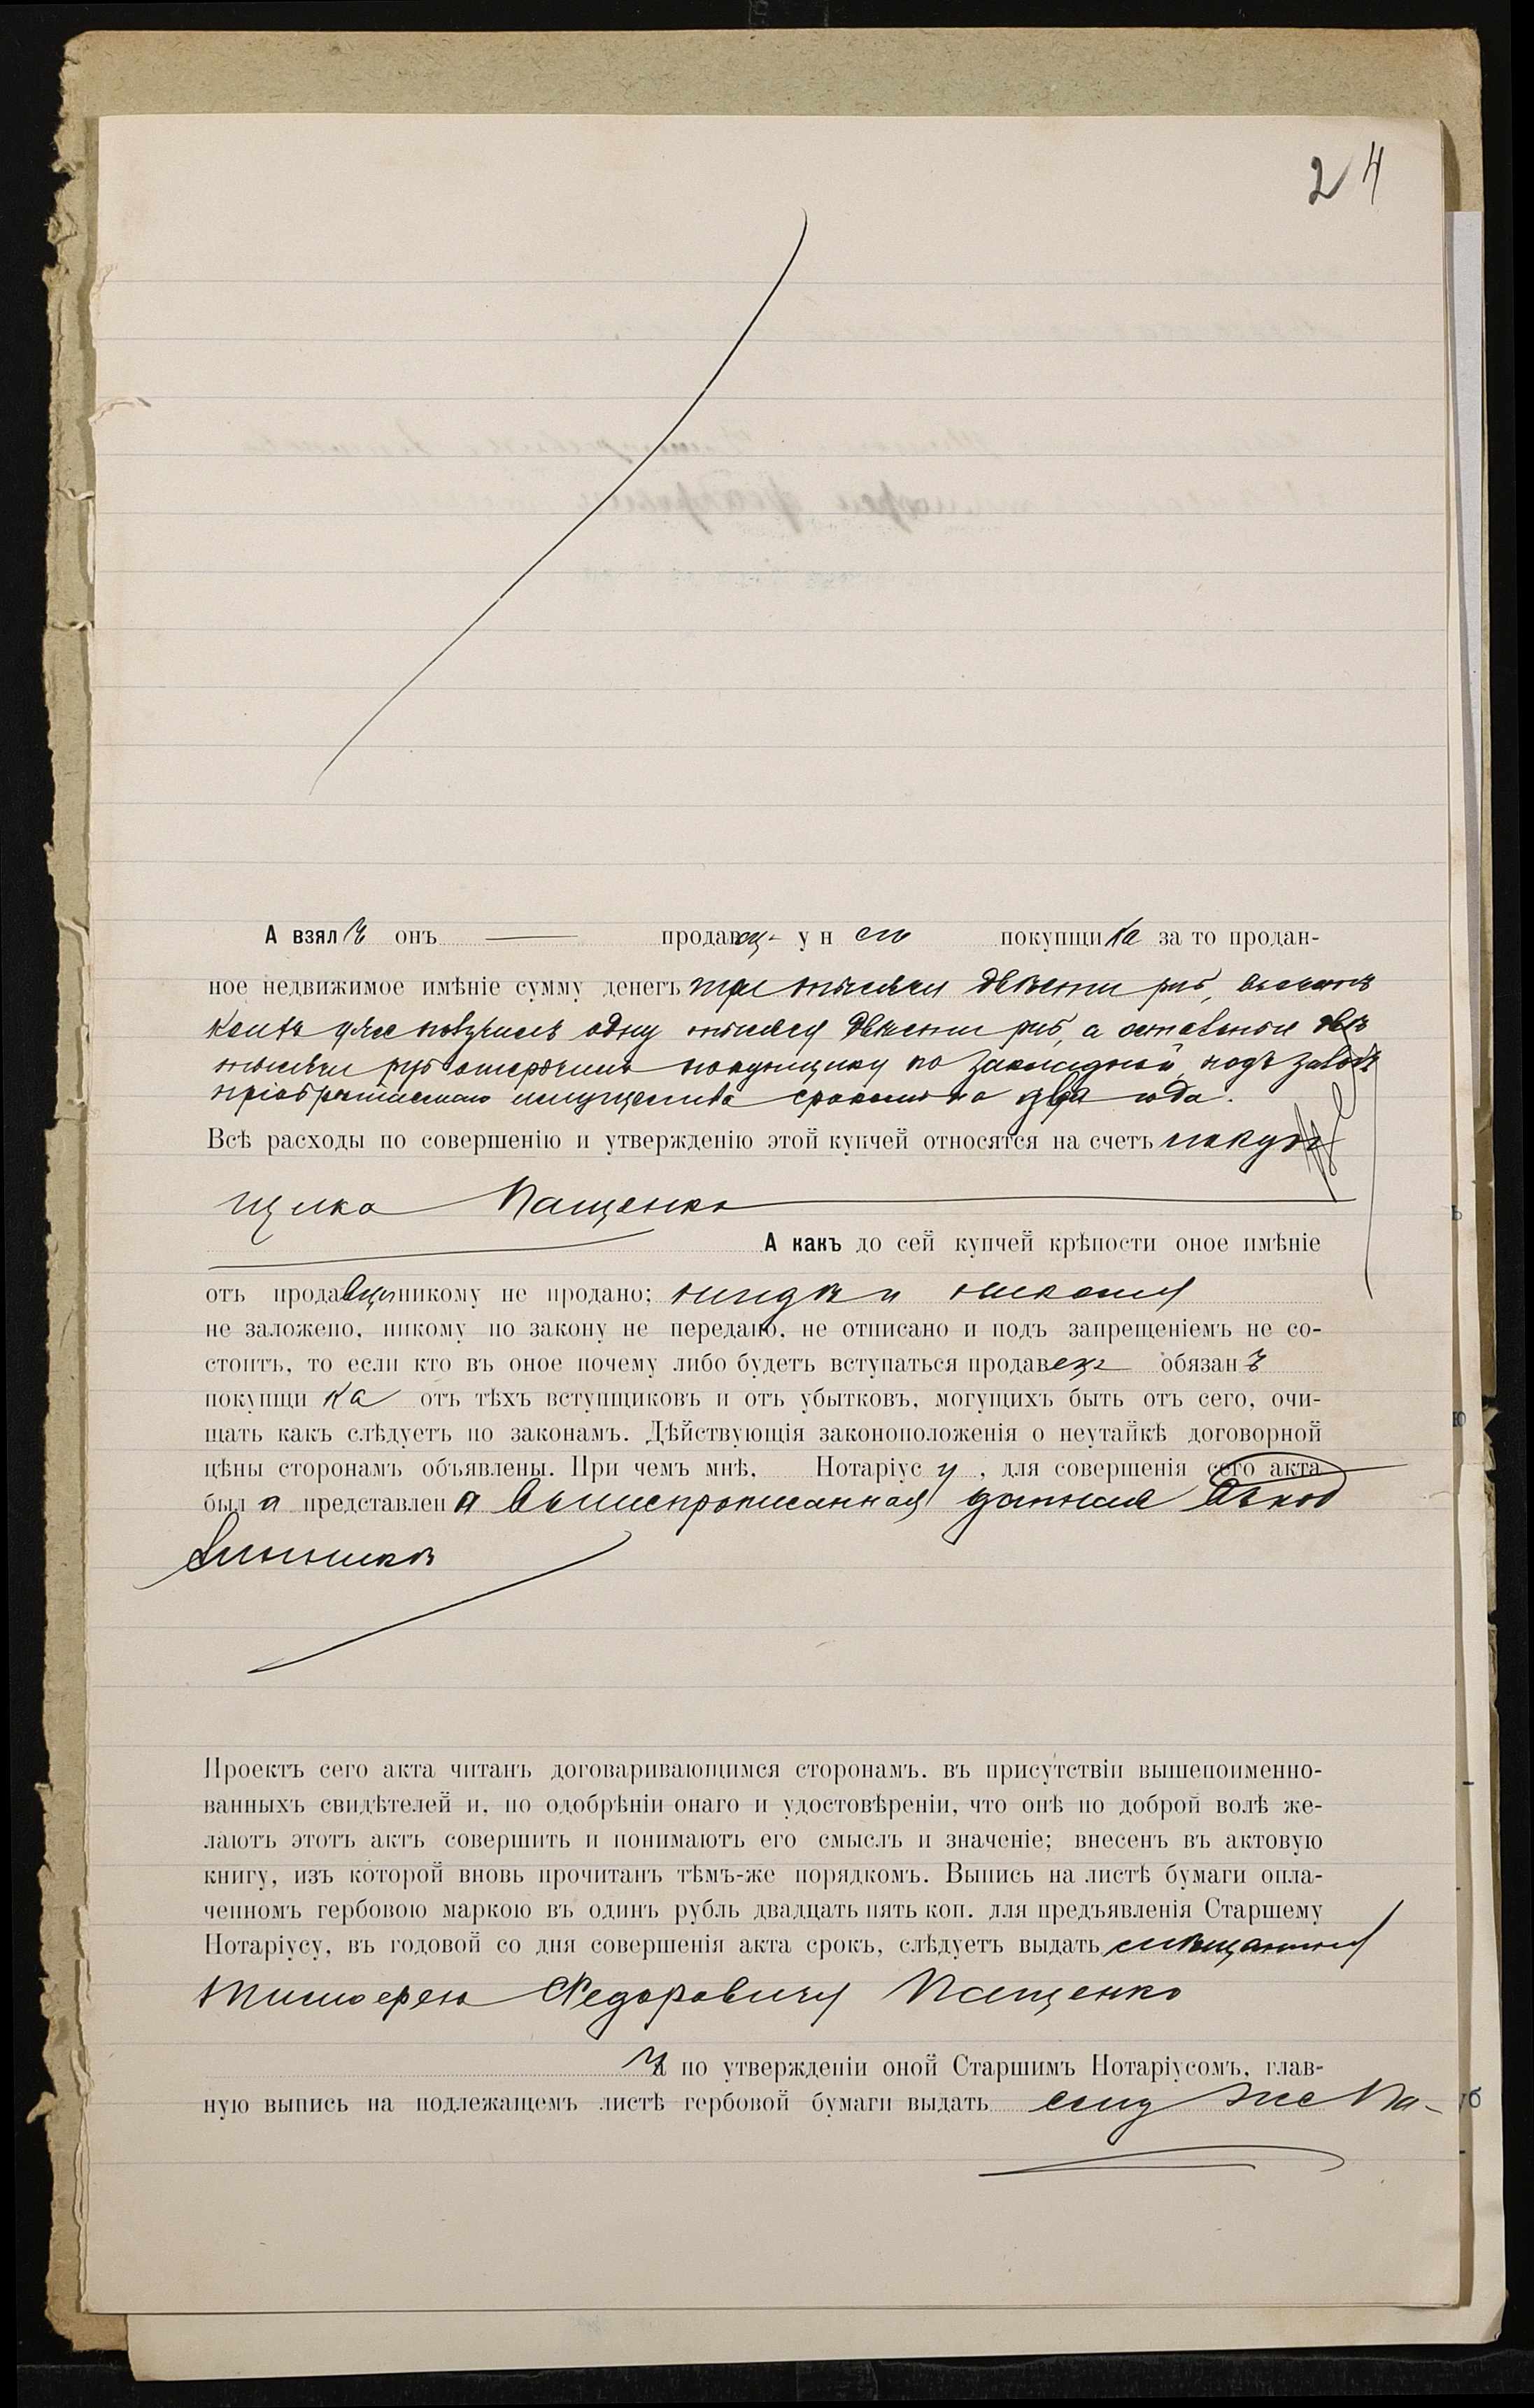 24
А взялъ онъ продавец у него покупщика за то продан-
ное недвижимое имѣніе сумму денегъ три тысячи двѣсти руб,
уже получилъ одну тысячу двѣсти руб, а остальныя двѣ
тысячи руб отсрочилъ покупщику по закладной подъ залогъ
пріобрѣтаемаго имущества срокомъ на два года.
Всѣ расходы по совершенію и утвержденію этой купчей относятся на счетъ покуп
щика Пащенко
А какъ до сей купчей крѣпости оное имѣніе
отъ продавца никому не продано; нигдѣ и никому
не заложено, никому по закону не передано, не отписано и подъ запрещеніемъ не со-
стоитъ, то если кто въ оное почему либо будетъ вступаться продавецъ обязанъ
покупщика отъ тѣхъ вступщиковъ и отъ убытковъ, могущихъ быть отъ сего, очи-
щать какъ слѣдуетъ по законамъ. Дѣйствующія законоположенія о неутайкѣ договорной
цѣны сторонамъ объявлены. При чемъ мнѣ, Нотаріусу, для совершенія сего акта
была представлена вышепрописанная данная въ под
линникѣ
Проектъ сего акта читанъ договаривающимся сторонамъ. въ присутствіи вышепоименно-
ванныхъ свидѣтелей и, по одобрѣніи онаго и удостовѣреніи, что онѣ по доброй волѣ же-
лаютъ этотъ актъ совершить и понимаютъ его смыслъ и значеніе; внесенъ въ актовую
книгу, изъ которой вновь прочитанъ тѣмъ-же порядкомъ. Выпись на листѣ бумаги опла-
ченномъ гербовою маркою въ одинъ рубль двадцать пять коп. для предъявленія Старшему
Нотаріусу, въ годовой со дня совершенія акта срокъ, слѣдуетъ выдать мѣщанину
Тимофею Федоровичу Пащенко
И по утвержденіи оной Старшимъ Нотаріусомъ, глав-
ную выпись на подлежащемъ листѣ гербовой бумаги выдать ему же Па-